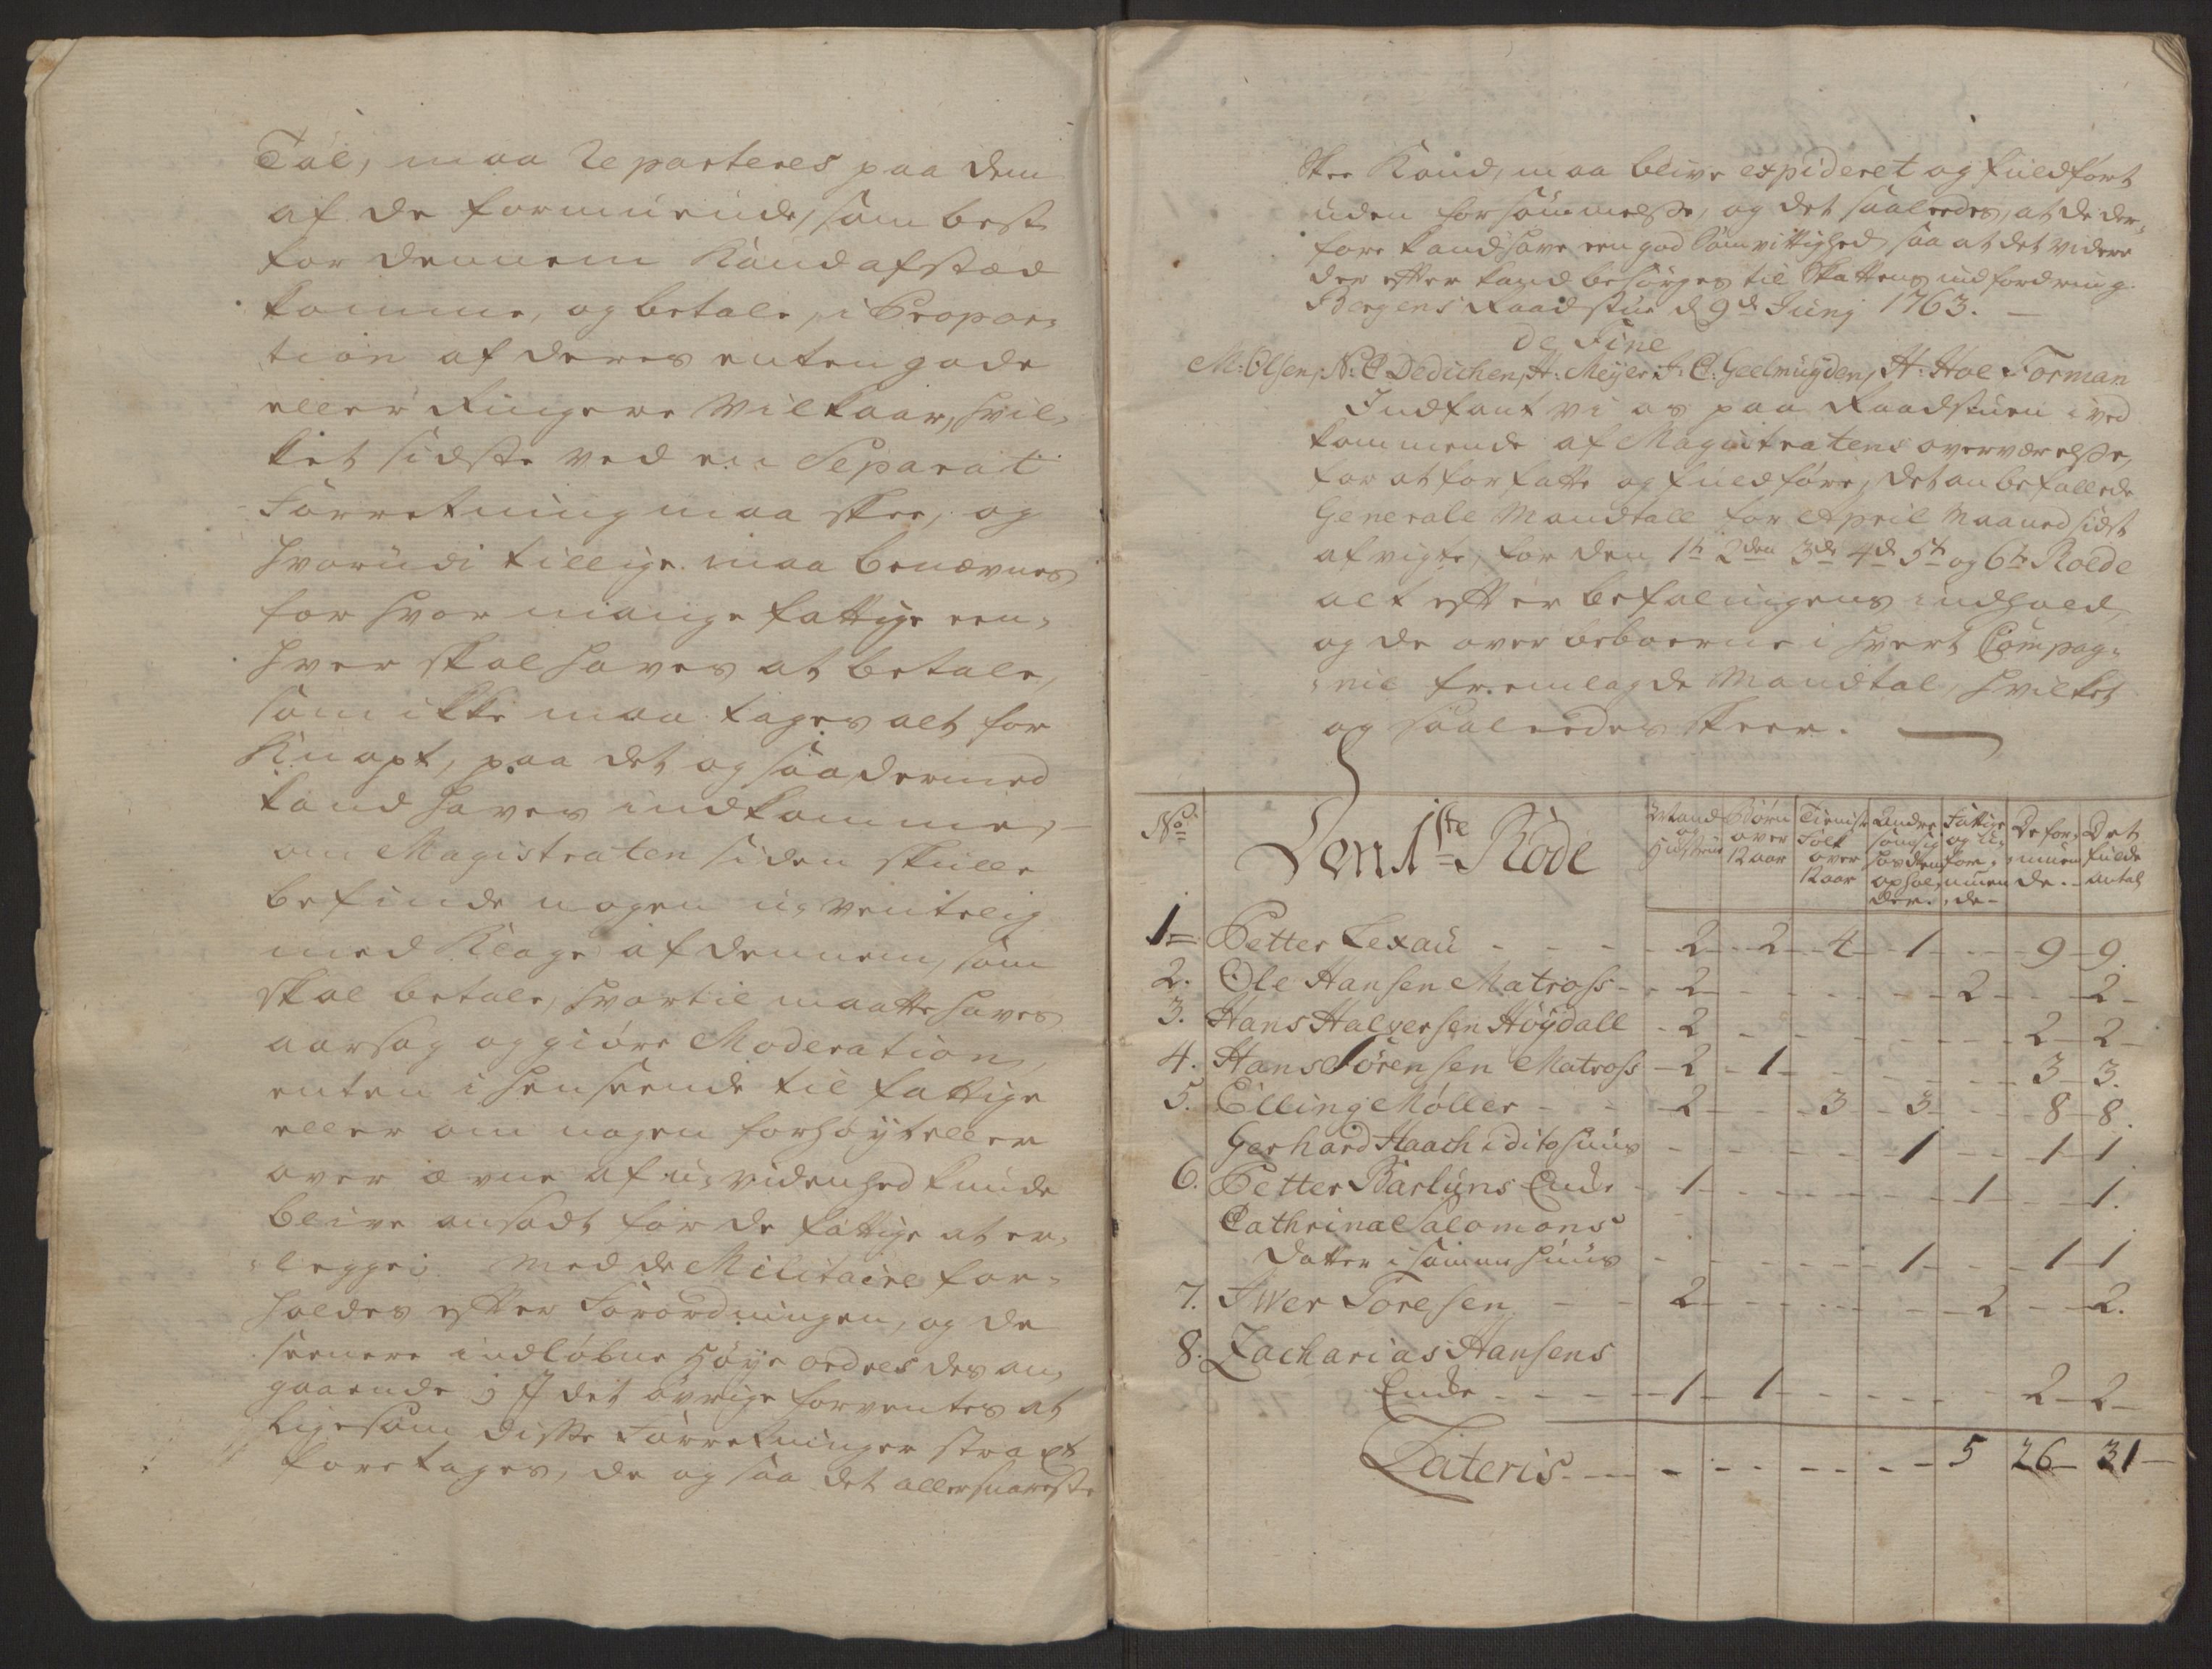 Tal, maa Reparteres paa dem
af de formuende, som best
for dennem kand afstæd
komme, og betale, i Propor-
tion af deres enten gode
eller Ringere Vilkaar, hvil-
ket sidste ved en Separat
Forretning maa skee, og
hvorudi tillige maa benævnes
for hvor mange fattige een-
hver skal haves at betale,
som ikke maa tages alt for
Knapt, paa det og saa dermed
kand haves indkomme,
om Magistraten siden skulle
befinde nogen u-ventelig
med Klage af dennem, som
skal betale, hvortil maatte haves
aarsag og giøre Moderation,
enten i henseende til fattige
eller om nogen forhøyt eller
over ævne af u-videnhed kunde
blive ansadt for de fattige at er-
legge; Med de Militaire for-
holdes efter Forordningen, og de
seenere indløbne høye ordres des an-
gaaende; J det øvrige forventes at
ligesom disse Forretninger strax
foretages, de og saa det allersnareste
skee Kand, maa blive expideret og fuldført
uden forsømmelse, og det saaledes, at de der-
fore kand have een god Samvittighed, saa at det videre
der efter kand besørges til Skattens indfordring.
Bergens Raadstue d 9d Junij 1763.
de Fine
M: Olsen, N: C Dedichen, H: Meyer, J. C: Geelmuyden, H: Hoe Forman
Indfant vi os paa Raadstuen i ved
kommende af Magistratens overværelse,
for at forfatte og fuldføre, det anbefallede
Generale Mandtall for April Maaned sidst
afvigte, for den 1te 2den 3de 4de 5te og 6te Roede
alt efter befalingens indhold,
og de over beboerne i hvert Compag-
nie fremlagde Mandtal, hvilket
og saaleedes skeer.
No Den 1ste Rode Mand og Hustrue Børn over 12 aar Tieniste Folk over 12 aar Andre som sig hos dem ophol- der. Fattige og U- for- muen- de De for- muen de. Det fulde Antal
1 Petter Lexau 2 2 4 1 9 9.
2. Ole Hansen Matross 2 2 2
3. Hans Halversen Höydall 2 2 2
4. Hans Sörensen Matross 2 1 3 3.
5. Elling Møller 2 3 3 8 8.
Gerhard Haach i dito huus 1 1 1
6. Petter Barluns Enke 1 1 1.
Cathrina Salomons
datter i samme huus 1 1 1
7. Iwer Toresen 2 2 2.
8. Zacharias Hansens
Enke 1 1 2 2
Lateris 5 26 31